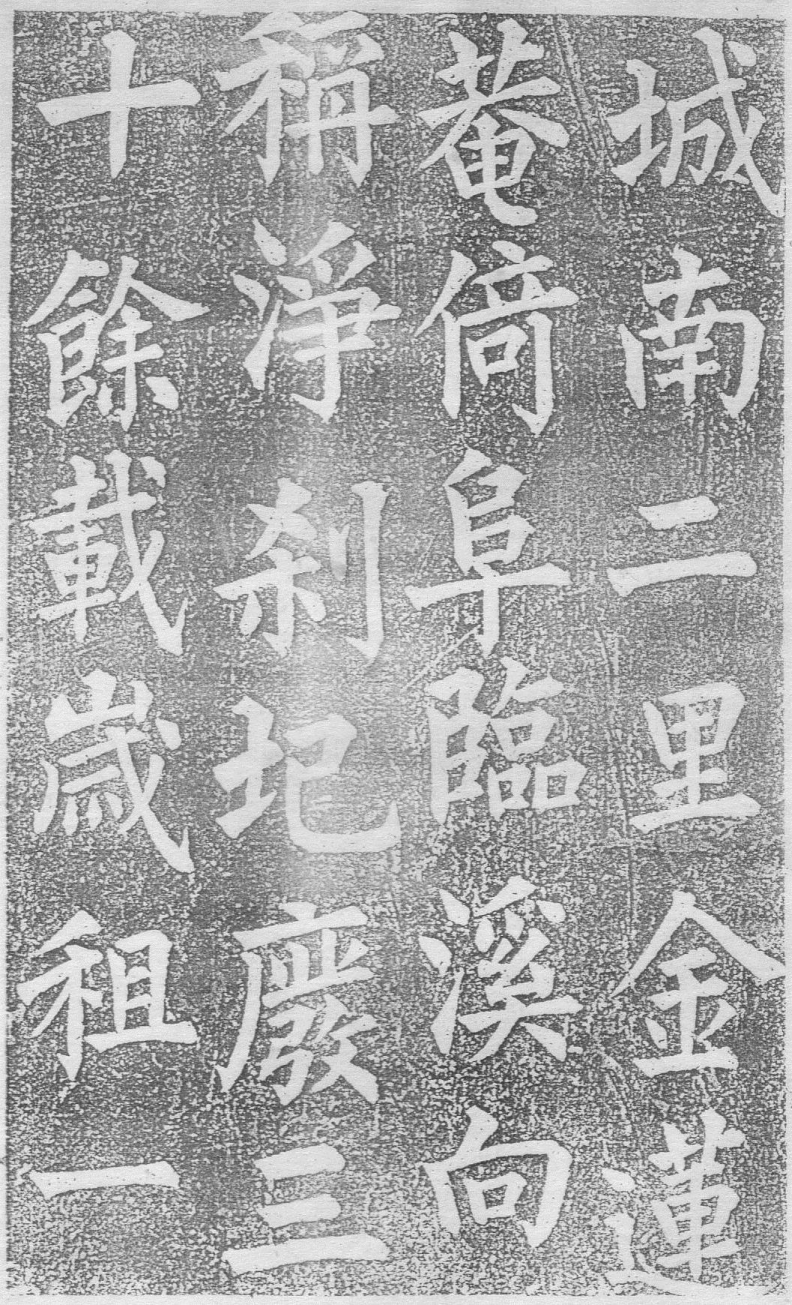 城南二里金蓮
菴倚阜臨溪向
稱淨刹圮廢三
十餘載歲祖一